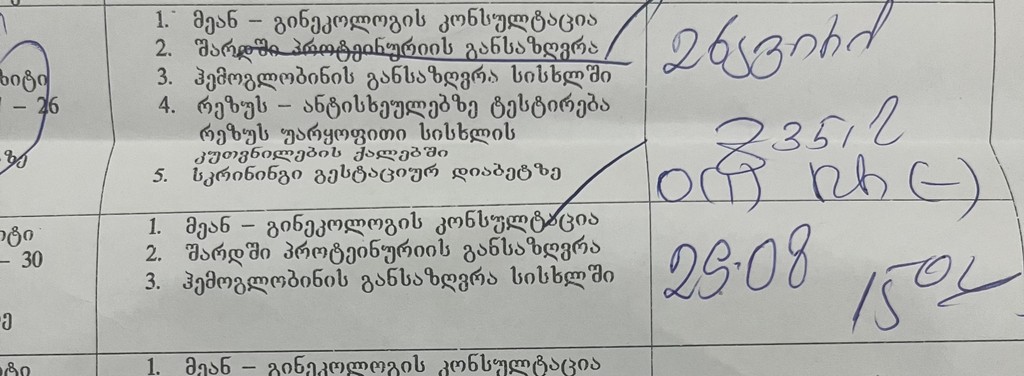 1. მეან – გინეკოლოგის კონსულტაცია
2. შარდში პროტეინურიის განსაზღვრა
3. ჰემოგლობინის განსაზღვრა სისხლში
– 26
4. რეზუს – ანტისხეულებზე ტესტირება
რეზუს უარყოფითი სისხლის
კუთვნილების ქალებში
5. სკრინინგი გესტაციურ დიაბეტზე
Z 35,2
O(I) Rh (–)
1. მეან – გინეკოლოგის კონსულტაცია
2. შარდში პროტეინურიის განსაზღვრა
– 30
3. ჰემოგლობინის განსაზღვრა სისხლში
1. მეან – გინეკოლოგის კონსულტაცია